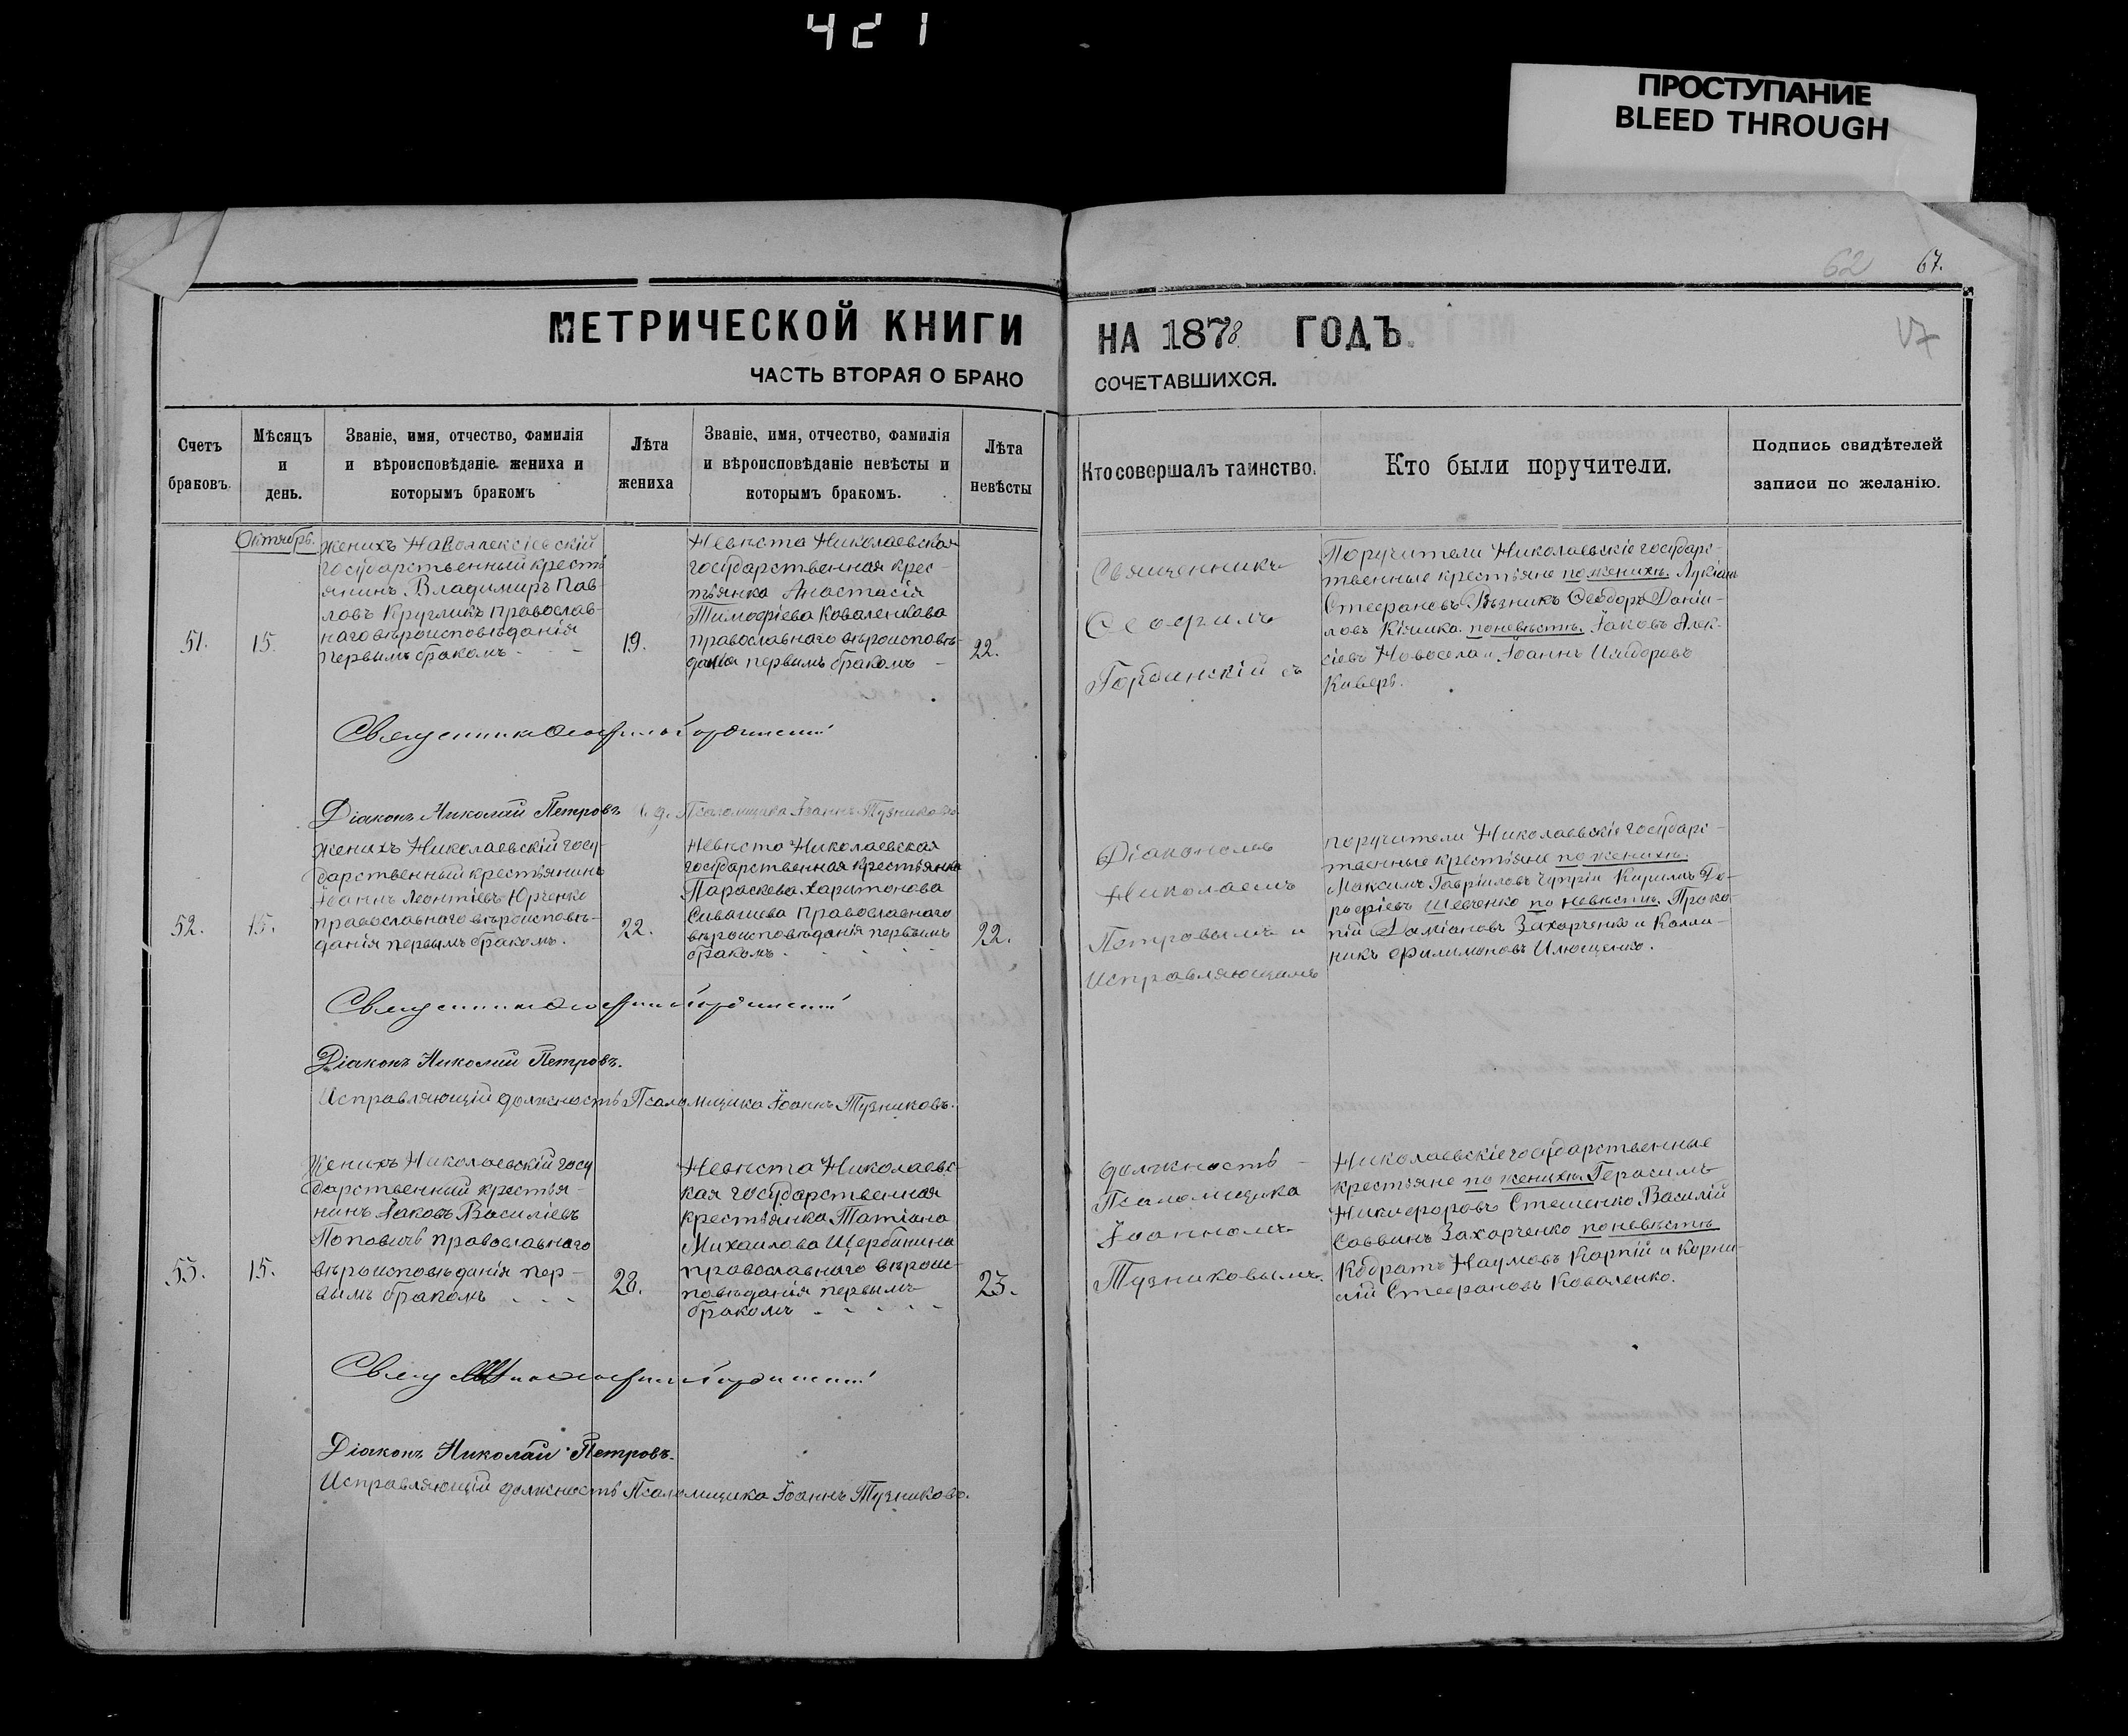 421
ПРОСТУПАНИЕ
BLEED THROUGH
62 67.
МЕТРИЧЕСКОЙ КНИГИ
НА 1878 ГОДЪ.
ЧАСТЬ ВТОРАЯ О БРАКО
СОЧЕТАВШИХСЯ.
Счетъ
браковъ.
Мѣсяцъ
и
день.
Званіе, имя, отчество, фамилія
и вѣроисповѣданіе жениха и
которымъ бракомъ
Лѣта
жениха
Званіе, имя, отчество, фамилія
и вѣроисповѣданіе невѣсты и
которымъ бракомъ.
Лѣта
невѣсты
Кто совершалъ таинство.
Кто были поручители.
Подпись свидѣтелей
записи по желанію.
Октябрь.
51.
15.
Женихъ Новоалексіевскій
государственный кресть
янинъ Владимиръ Пав-
ловъ Кругликъ православ-
наго вѣроисповѣданія
первымъ бракомъ
19.
Невѣста Николаевская
государственная крес-
тьянка Анастасія
Тимофіева Коваленкова
православнаго вѣроисповѣ-
данія первымъ бракомъ
22.
Священникъ
Ѳеофилъ
Горбинскій съ
Поручители Николаевскіе государс-
твенные крестьяне по женихѣ Лукіанъ
Стефановъ Ѳеодоръ Даніи-
ловъ по невѣстѣ. Іаковъ Алек-
сіевъ Новосела и Іоаннъ Исидоровъ
Киверъ.
Священникъ Ѳеофилъ Горбинскій
Діаконъ Николай Петровъ и. д. Псаломщика Іоаннъ Тузниковъ
52.
15.
Женихъ Николаевскій госу-
дарственный крестьянинъ
Іоаннъ Леонтіевъ Юрченко
православнаго вѣроисповѣ-
данія первымъ бракомъ.
22.
Невѣста Николаевская
государственная крестьянка
Параскева Харитонова
Сивашева православнаго
вѣроисповѣданія первымъ
бракомъ.
22.
Діакономъ
Николаемъ
Петровымъ и
Исправляющимъ
поручители Николаевскіе государс-
твенные крестьяне по женихѣ
Максимъ Гавріиловъ Кирилъ До-
рофіевъ Шевченко по невѣстѣ. Проко-
пій Даміановъ Захарченко и Калли-
никъ Филимоновъ Илющенко.
Священникъ Ѳеофилъ Горбинскій
Діаконъ Николай Петровъ.
Исправляющій должность Псаломщика Іоаннъ Тузниковъ.
53.
15.
Женихъ Николаевскій госу
дарственный крестья-
нинъ Іаковъ Василіевъ
Поповичъ православнаго
вѣроисповѣданія пер-
вымъ бракомъ
28.
Невѣста Николаевс-
кая государственная
крестьянка Татіана
Михаилова Щербинина
православнаго вѣроис-
повѣданія первымъ
бракомъ
23.
должность
Псаломщика
Іоанномъ
Тузниковымъ.
Николаевскіе государственные
крестьяне по женихѣ Герасимъ
Никифоровъ Стешенко Василій
Саввинъ Захарченко по невѣстѣ
Кодратъ Наумовъ Карпій и Корни
лій Стефановъ Коваленко.
Священникъ Ѳеофилъ Горбинскій
Діаконъ Николай Петровъ.
Исправляющій должность Псаломщика Іоаннъ Тузниковъ.